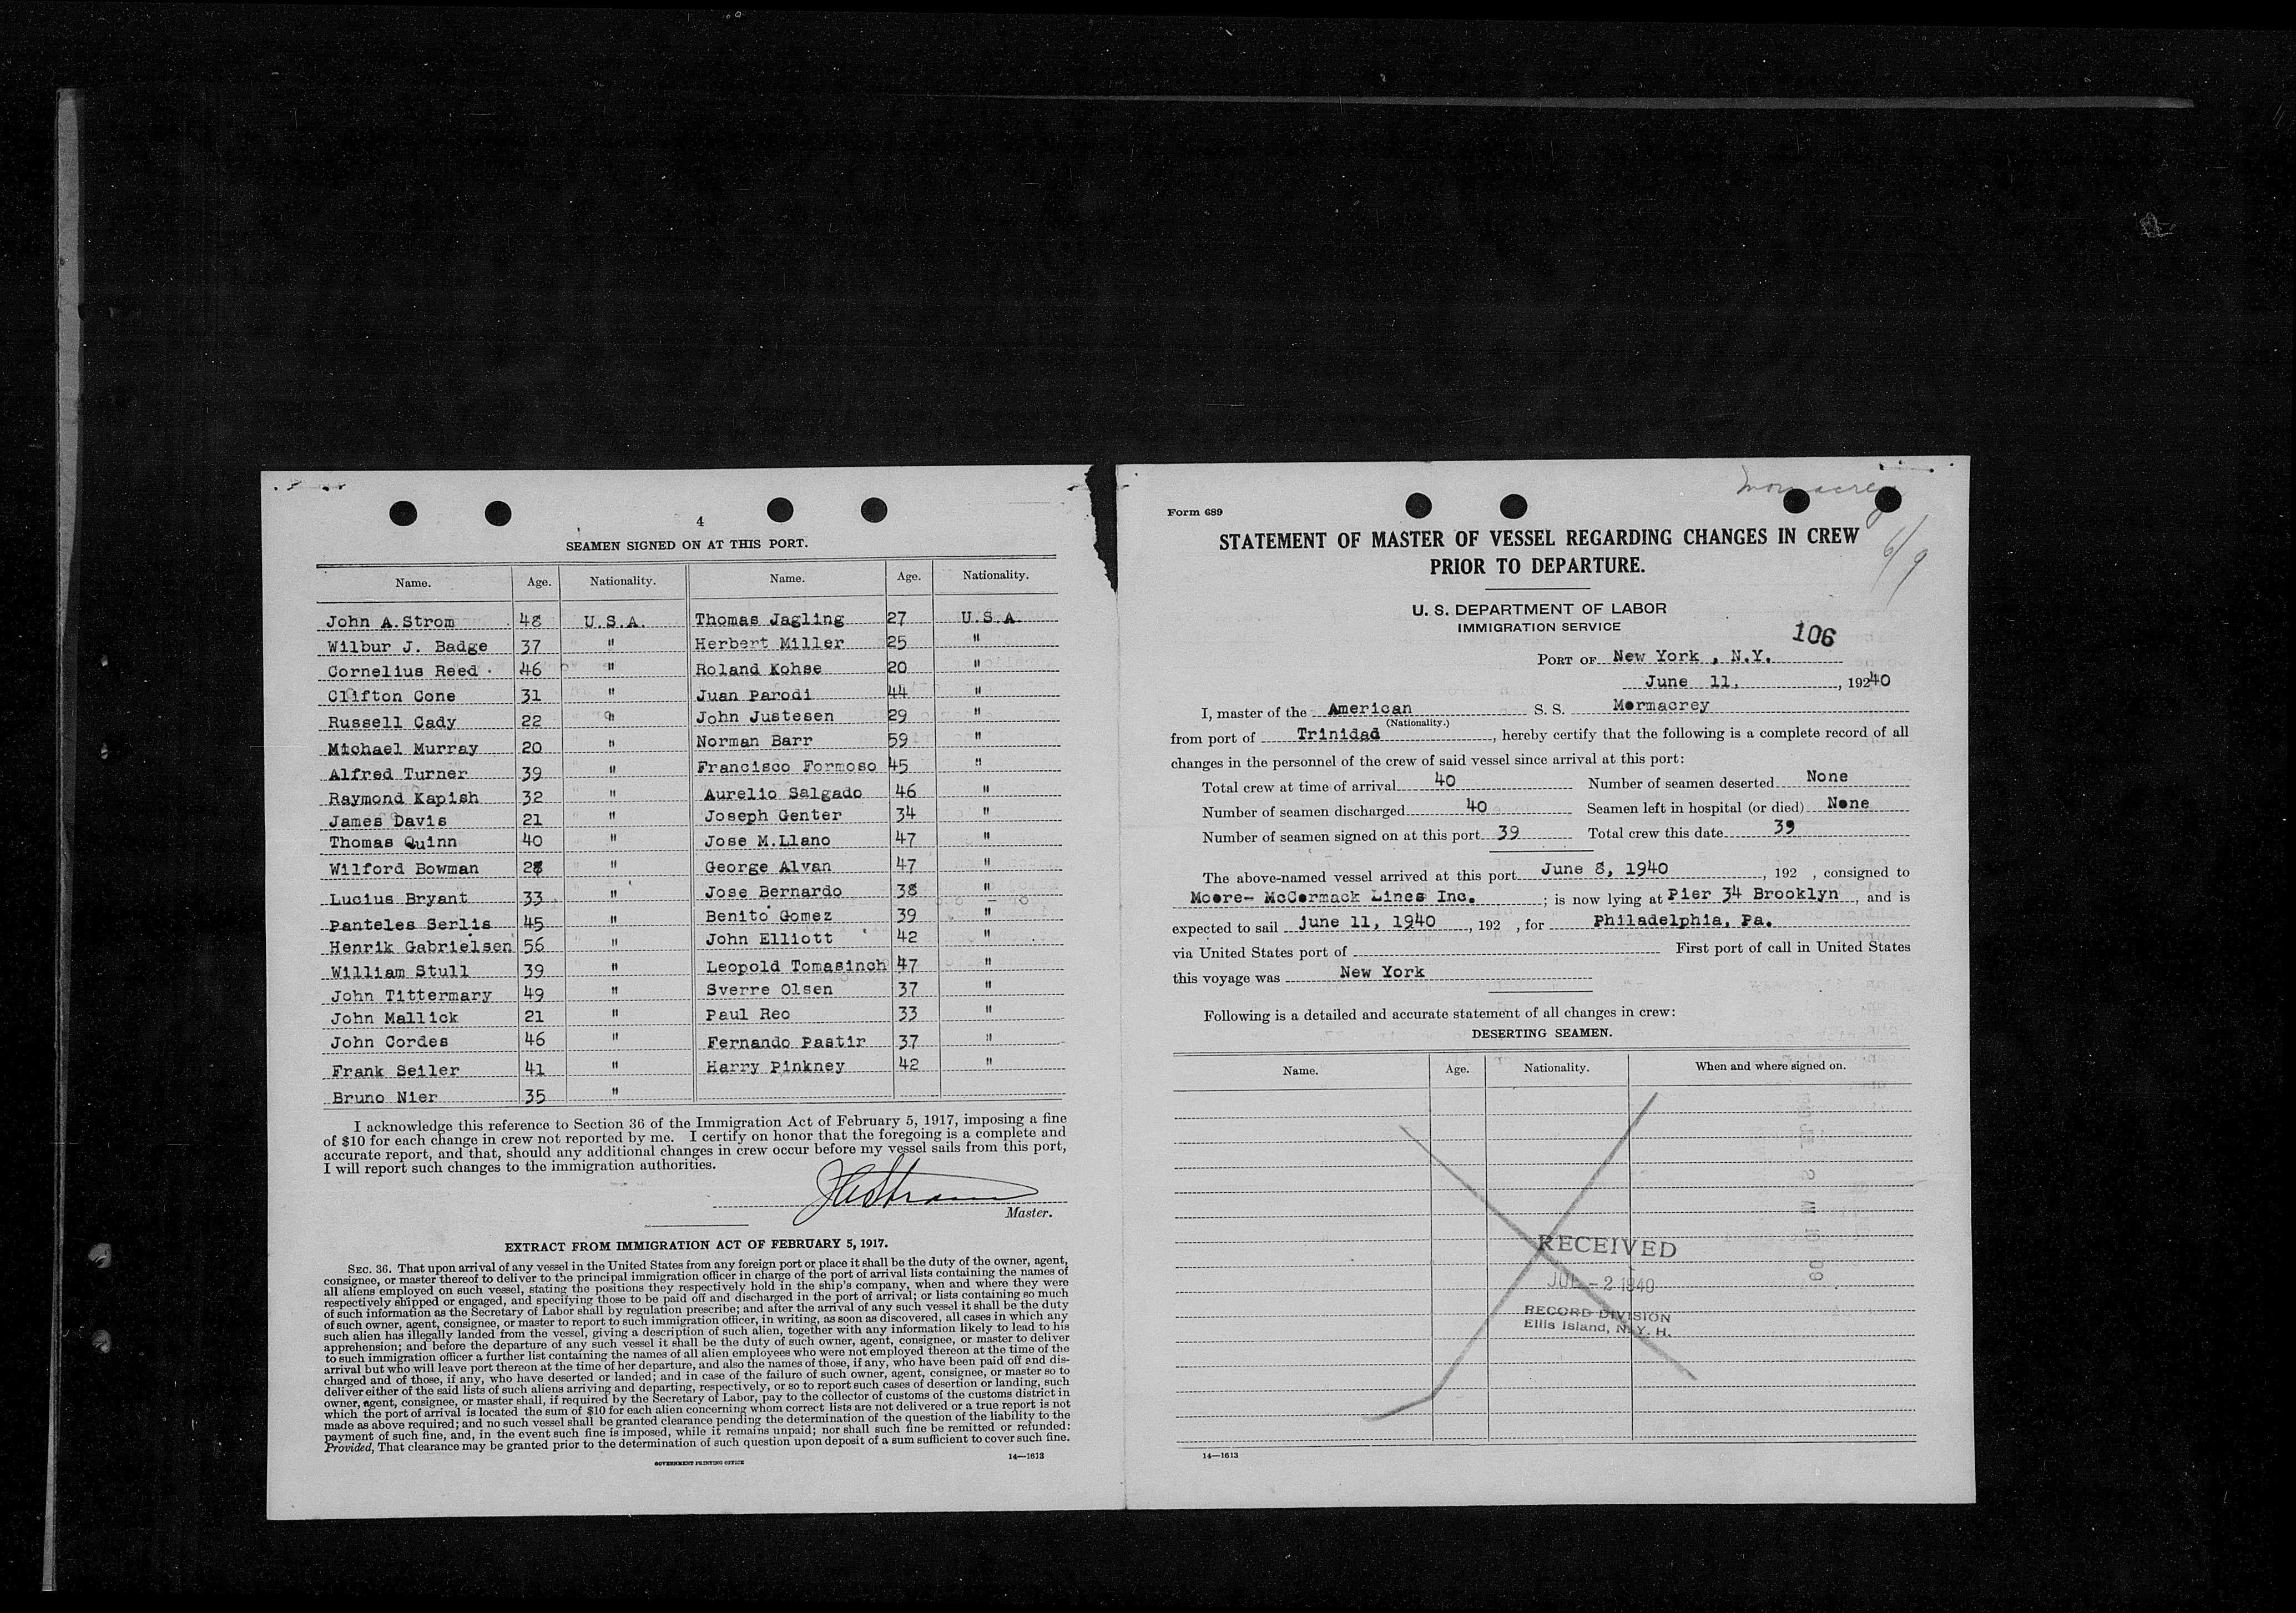 4
SEAMEN SIGNED ON AT THIS PORT.
Name. Age. Nationality. Name. Age. Nationality.
John A.Strom 48 U.S.A. Thomas Jagling 27 U.S.A.
Wilbur J. Badge 37 " Herbert Miller 25 "
Cornelius Reed 46 " Roland Kohse 20 "
Clifton Cone 31 " Juan Parodi 44 "
Russell Cady 22 " John Justesen 29 "
Michael Murray 20 " Norman Barr 59 "
Alfred Turner 39 " Francisco Formoso 45 "
Raymond Kapish 32 " Aurelio Salgado 46 "
James Davis 21 " Joseph Genter 34 "
Thomas Quinn 40 " Jose M.Llano 47 "
Wilford Bowman 28 " George Alvan 47 "
Lucius Bryant 33 " Jose Bernardo 38 "
Panteles Serlis 45 " Benito Gomez 39 "
Henrik Gabrielsen 56 " John Elliott 42 "
William Stull 39 " Leopold Tomasinch 47 "
John Tittermary 49 " Sverre Olsen 37 "
John Mallick 21 " Paul Reo 33 "
John Cordes 46 " Fernando Pastir 37 "
Frank Seiler 41 " Harry Pinkney 42 "
Bruno Nier 35 "
I acknowledge this reference to Section 36 of the Immigration Act of February 5, 1917, imposing a fine
of $10 for each change in crew not reported by me. I certify on honor that the foregoing is a complete and
accurate report, and that, should any additional changes in crew occur before my vessel sails from this port,
I will report such changes to the immigration authorities.
JAStrom
Master.
EXTRACT FROM IMMIGRATION ACT OF FEBRUARY 5, 1917.
SEC. 36. That upon arrival of any vessel in the United States from any foreign port or place it shall be the duty of the owner, agent,
consignee, or master thereof to deliver to the principal immigration officer in charge of the port of arrival lists containing the names of
all aliens employed on such vessel, stating the positions they respectively hold in the ship's company, when and where they were
respectively shipped or engaged, and specifying those to be paid off and discharged in the port of arrival; or lists containing so much
of such information as the Secretary of Labor shall by regulation prescribe; and after the arrival of any such vessel it shall be the duty
of such owner, agent, consignee, or master to report to such immigration officer, in writing, as soon as discovered, all cases in which any
such alien has illegally landed from the vessel, giving a description of such alien, together with any information likely to lead to his
apprehension; and before the departure of any such vessel it shall be the duty of such owner, agent, consignee, or master to deliver
to such immigration officer a further list containing the names of all alien employees who were not employed thereon at the time of the
arrival but who will leave port thereon at the time of her departure, and also the names of those, if any, who have been paid off and dis-
charged and of those, if any, who have deserted or landed; and in case of the failure of such owner, agent, consignee, or master so to
deliver either of the said lists of such aliens arriving and departing, respectively, or so to report such cases of desertion or landing, such
owner, agent, consignee, or master shall, if required by the Secretary of Labor, pay to the collector of customs of the customs district in
which the port of arrival is located the sum of $10 for each alien concerning whom correct lists are not delivered or a true report is not
made as above required; and no such vessel shall be granted clearance pending the determination of the question of the liability to the
payment of such fine, and, in the event such fine is imposed, while it remains unpaid; nor shall such fine be remitted or refunded:
Provided, That clearance may be granted prior to the determination of such question upon deposit of a sum sufficient to cover such fine.
GOVERNMENT PRINTING OFFICE 14—1613
Mormacrey
6/9
Form 689
STATEMENT OF MASTER OF VESSEL REGARDING CHANGES IN CREW
PRIOR TO DEPARTURE.
U. S. DEPARTMENT OF LABOR
IMMIGRATION SERVICE
106
PORT OF New York , N.Y.
June 11, , 19240
I, master of the American S. S. Mormacrey
(Nationality.)
from port of Trinidad , hereby certify that the following is a complete record of all
changes in the personnel of the crew of said vessel since arrival at this port:
Total crew at time of arrival 40 Number of seamen deserted None
Number of seamen discharged 40 Seamen left in hospital (or died) None
Number of seamen signed on at this port 39 Total crew this date 39
The above-named vessel arrived at this port June 8, 1940 , 192 , consigned to
Moore- McCormack Lines Inc. ; is now lying at Pier 34 Brooklyn , and is
expected to sail june 11, 1940 , 192 , for Philadelphia, Pa.
via United States port of First port of call in United States
this voyage was New York
Following is a detailed and accurate statement of all changes in crew:
DESERTING SEAMEN.
Name. Age. Nationality. When and where signed on.
RECEIVED
JUL -2 1940
RECORD DIVISION
Ellis Island, N. Y. H.
14—1613